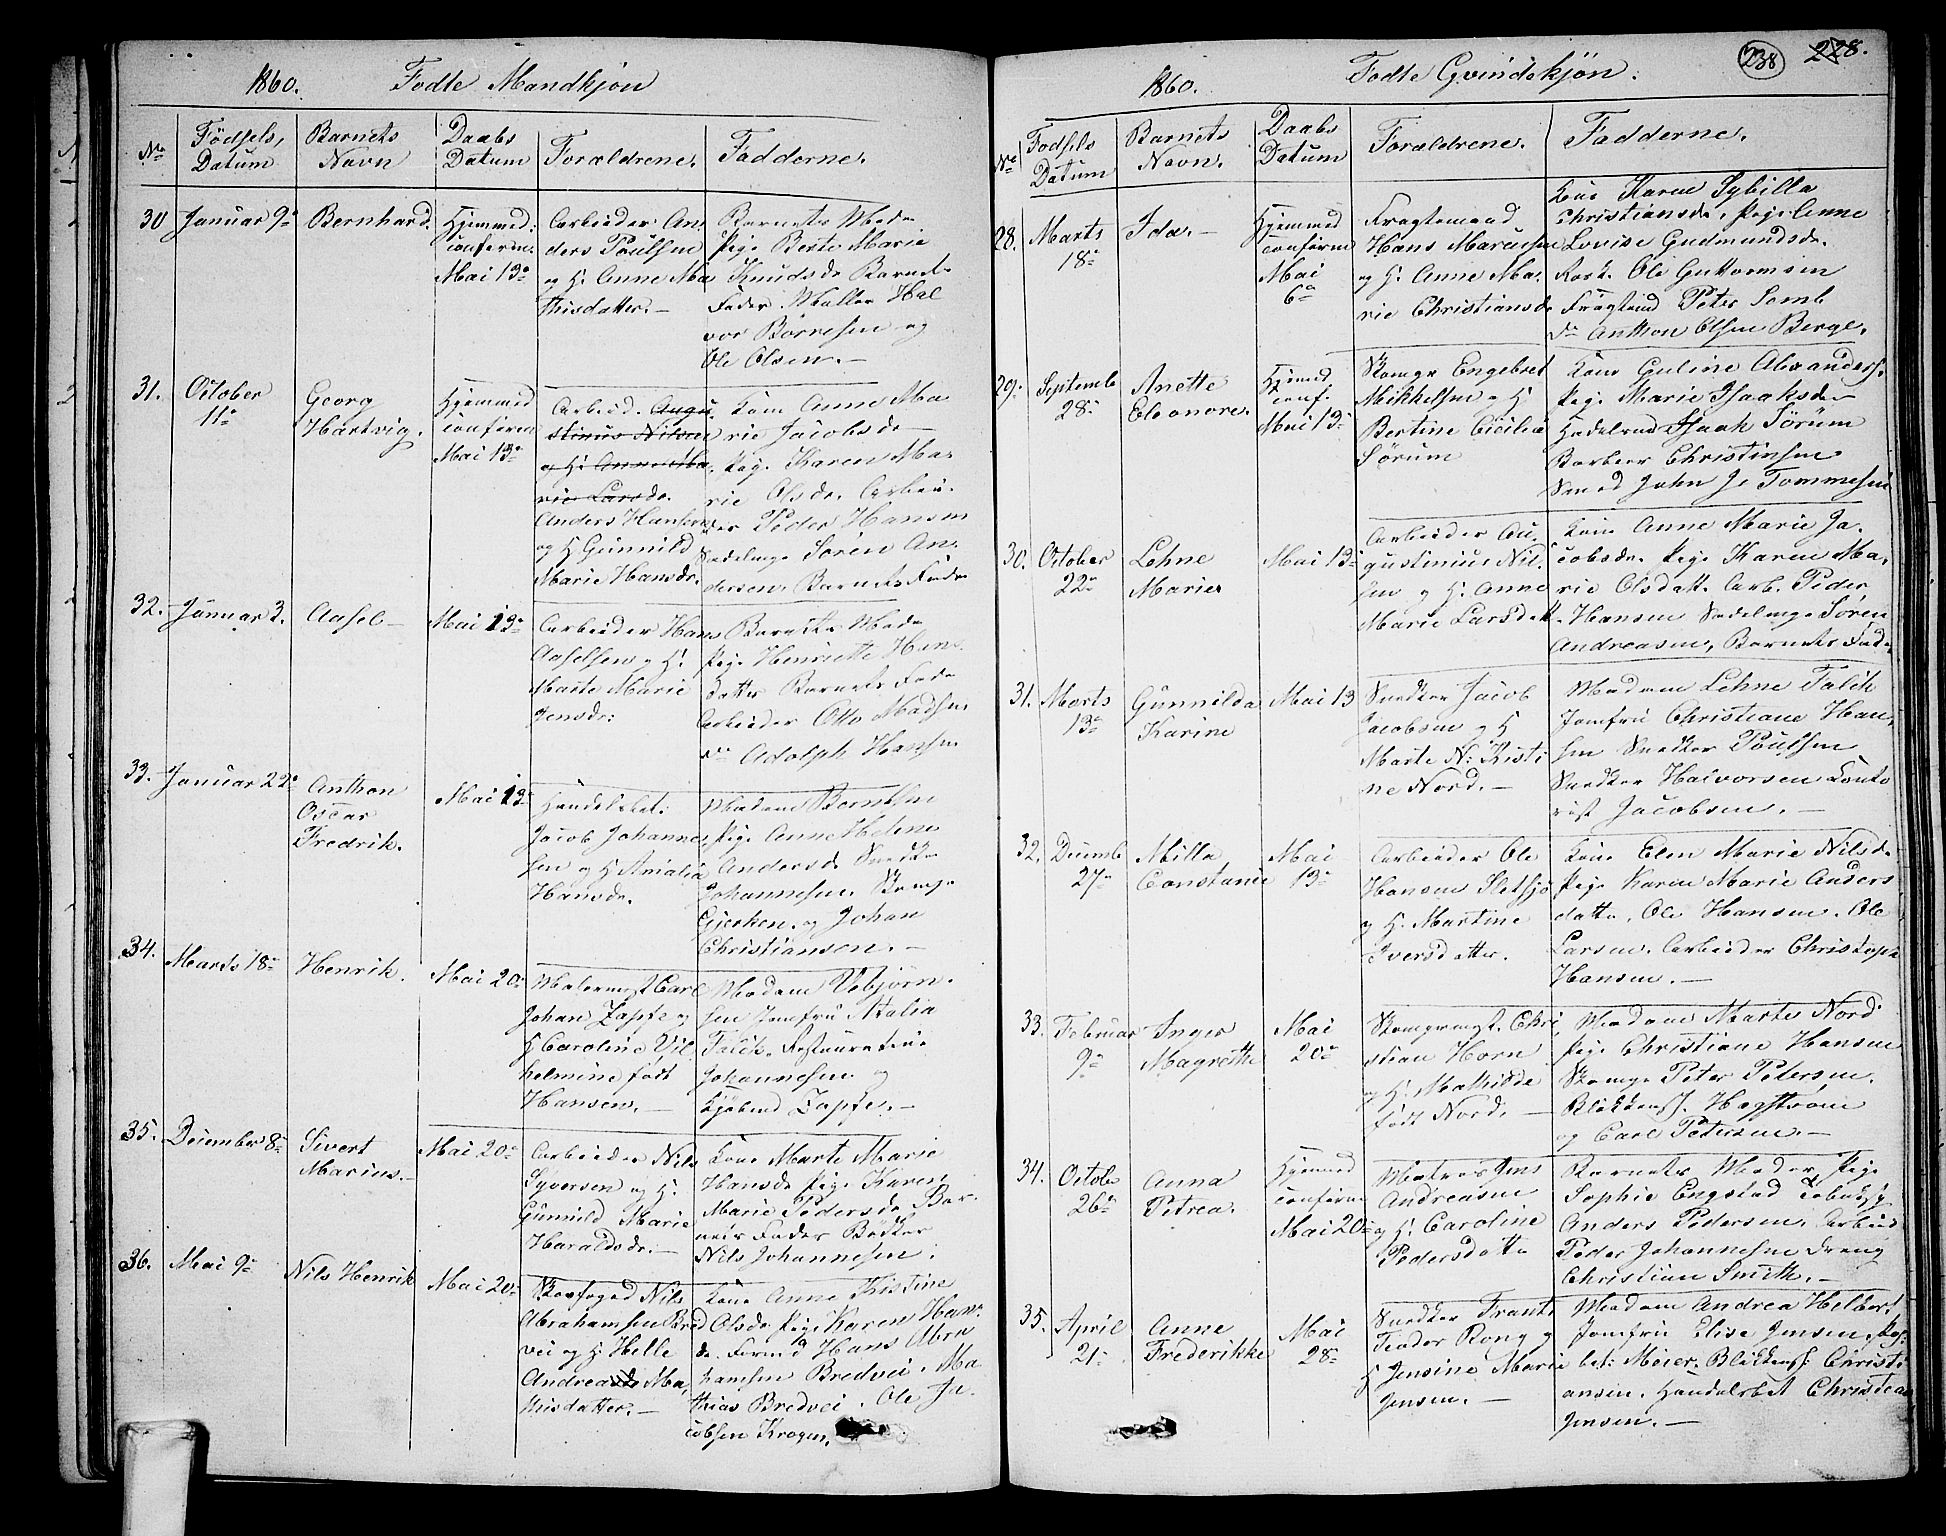 1860. Fødte Mandkjøn
No
Fødsels, Datum
Barnets Navn
Daabs Datum
Forældrene.
Fadderne.
30 Januar 9de Bernhard. Hjemmed: confirm. Mai 13de
Arbeider An
ders Poulsen
og H. Anne Ma
thisdatter. —
Barnets Mode
Pige Berte Marie
Knudsd. Barnets
Fader. Møller Hal
vor Børresen og
Ole Olsen. —
31. October 11te Georg Hartvig. Hjemmed confirm Mai 13de
Arbeid. Augu
stinus Nilsen
og H. Anne Ma
rie Larsd.
Anders Hansen
og H Gunnild
Marie Hansd.
Kone Anne Ma
rie Jacobsd. —
Pige Karen Ma
rie Olsd. Arbei
der Peder Hansen
Sadelmg Søren An
dersen, Barnets Fader
32. Januar 3. Axsel — Mai 13de
Arbeider Hans
Axselsen og H.
Marte Marie
Jensd:
Barnets Mode
Pige Henriette Hans
datter Barnets Fader
Arbeider Otto Madsen
do Adolph Hansen
33. Januar 22de Anthon Oscar Fredrik. Mai 13de
Handelsbet:
Jacob Johannes
sen og H Amalia
Hansd.
Madam Berntsen
Pige Anne Helene
Andersd. Snedker
Johannesen. Skomg
Gjerken. og Johan
Christiansen. —
34. Marts 18de Henrik. Mai 20de
Malermgst Carl
Johan Zapfe og
H Caroline Vil
helmine født
Hansen. —
Madam Vebjørn
sen Jomfru Atalia
Falck. Restauratør
Johannesen og
Kjøbmd Zapfe. —
35. December 8de Sivert Marius. — Mai 20de
Arbeider Nils
Syversen og H.
Gunnild Marie
Haraldsd. —
Kone Marte Marie
Hansd. Pige Karen
Marie Pedersd. Bar
nets Fader Bødker
Nils Johannesen.
36. Mai 9de Nils Henrik Mai 20de
Skovfoged Nils
Abrahamsen Bred
vei og H Helle
Andrea Ma
thisdatter. —
Kone Anne Kistine
Olsd. Pige Karen Han
sd. Formd Hans Abra
hamsen Bredvei. Ma
thias Bredvei. Ole Ja
cobsen Krogen.
1860. Fødte Qvindekjøn.
238 228.
No
Fødsels Datum
Barnets Navn.
Daabs Datum
Forældrene.
Fadderne.
28. Marts 18de Ida. — Hjemmed confirm Mai 6te
Fragtemand
Hans Marcusen
og H. Anne Ma
rie Christiansd.
Kone Karen Sybilla
Christiansd. Pige Anne
Lovise Gudmundsd.
Ole Guttormsen
Fragtemd Peter Semb
do Anthon Olsen Berge.
29. Septemb 28de Anette Eleonore. Hjemmed conf. Mai 13de
Skomgr Engebret
Mikkelsen og H
Bertine Cicilie
Sørum
Kone Guline Alexanders.
Pige Marie Isaaksd. —
Isaak Sørum
Barbeer Christinsen
Smed John Js Tommesen
30. October 22de Lehne Marie Mai 13de
Arbeider Au
gustinius Nil
sen og H. Anne
Marie Larsdatt
Kone Anne Marie Ja
cobsd. Pige Karen Ma
rie Olsdatt. Arb. Peder
Hansen Sadelmg Søren
Andreasen, Barnets Fader
31. Marts 13de Gunnilda Karine Mai 13
Snedker Jacob
Jacobsen og H
Marte N: Kisti
ne Nord. —
Madam Lehne Falck
Jomfru Christiane Han
sen Snedker Poulsen
Snedker Halvorsen Conto
rist Jacobsen. —
32. Decemb 27de Milla Constance Mai 13de
Arbeider Ole
Hansen Sletsjø
og H. Martine
Iversdatter.
Kone Elen Marie Nilsd.
Pige Karen Marie Anders
datter. Ole Hansen. Ole
Larsen. Arbeider Christoph
Hansen. —
33. Februar 9de Inger Magrethe Mai 20de
Skomgrmgst. Chri
stian Horn
og H. Mathilde
født Nord. —
Madam Marte Nord
Pige Christiane Hansen
Skomgr Peter Petersen.
Blikkensl. Hagstrøm
og Carl Petersen. —
34. October 26de Anna Petrea. Hjemmed confirm Mai 20de
Matros Jens
Andreasen
og H. Caroline
Pedersdatter
Barnets Moder, Pige
Sophie Engstad
Anders Pedersen. Arbeid
Peder Johannesen Dreng
Christian Smith. —
35. April 21de Anne Frederikke Mai 28de
Snedker Frants
Teodor Rong og
H Jensine Marie
Jensen. —
Madam Andrea Helbert
Jomfru Elise Jensen,
bet: Meier. Blikkensl: Christi
ansen. Handelsbet Christian
Jensen. —